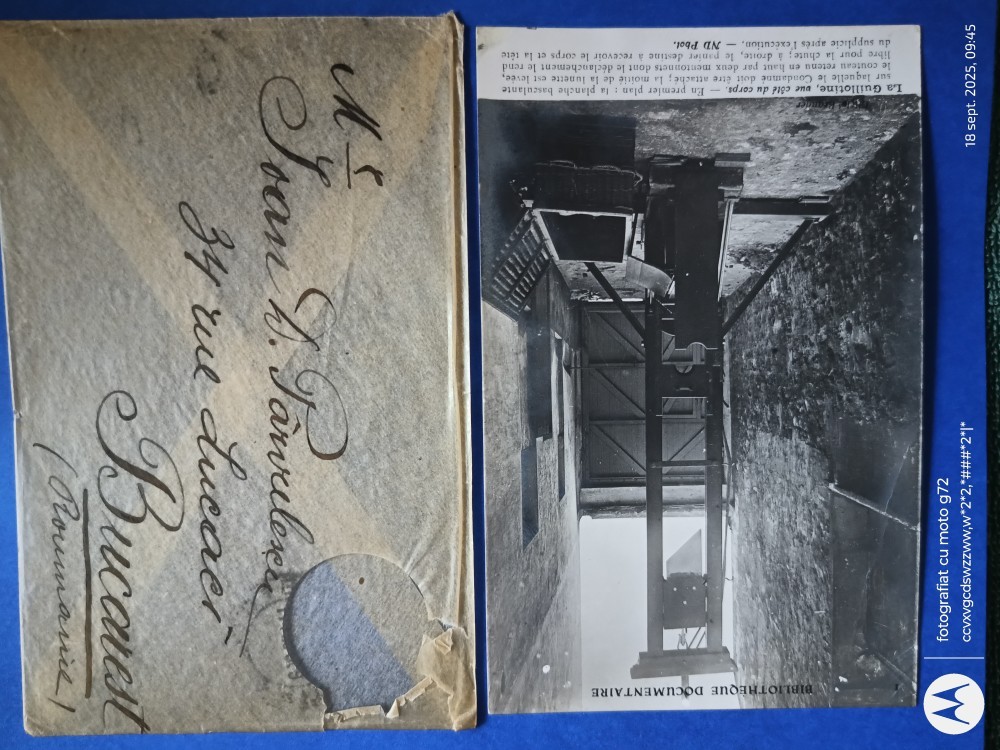 Mr
Ioan D. Pârvulescu
34 rue Lucaci
Bucarest
(Roumanie)
BIBLIOTHÈQUE DOCUMENTAIRE
1
La Guillotine, vue côté du corps. — En premier plan : la planche basculante
sur laquelle le Condamné doit être attaché; la moitié de la lunette est levée,
le couteau retenu en haut par deux mentonnets dont le déclanchement le rend
libre pour la chute; à droite, le panier destiné à recevoir le corps et la tête
du supplicié après l'exécution. — ND Phot.
fotografiat cu moto g72
ccvxvgcdswzzww,w*2*2,*###*2*|*
18 sept. 2025, 09:45